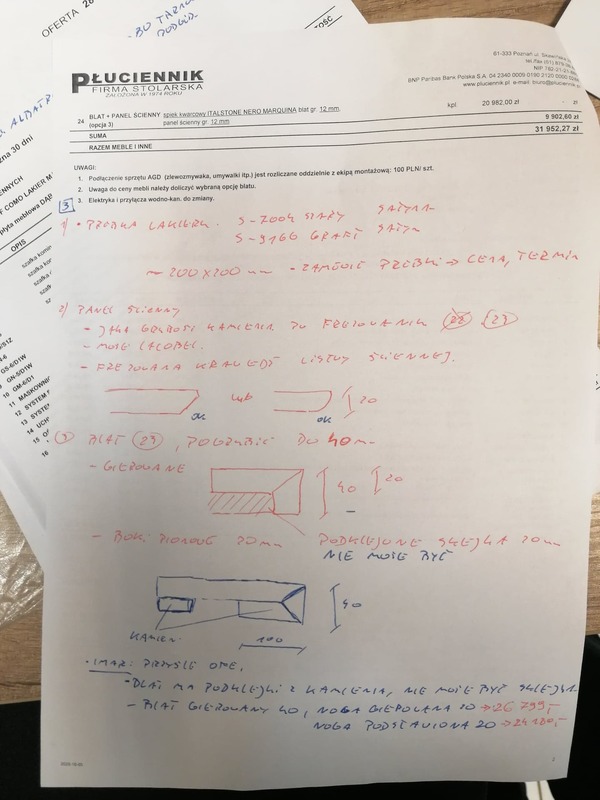 OFERTA 20
- BO
PODKŁD.
61-333 Poznań
NIP 782-21-21
BNP Paribas Bank Polska S.A. 04 2340 0009 0190 2120 0000
www.pluciennik.pl e-mail: biuro@pluciennik.pl
PŁUCIENNIK
FIRMA STOLARSKA
ZAŁOŻONA W 1974 ROKU
24 BLAT + PANEL ŚCIENNY (opcja 3) spiek kwarcowy ITALSTONE NERO MARQUINA blat gr. 12 mm, panel ścienny gr. 12 mm kpl. 20 982,00 zł - zł
SUMA 9 902,60 zł
RAZEM MEBLE I INNE 31 952,27 zł
UWAGI:
1. Podłączenie sprzętu AGD (zlewozmywaka, umywalki itp.) jest rozliczane oddzielnie z ekipą montażową: 100 PLN/ szt.
2. Uwaga do ceny mebli należy doliczyć wybraną opcję blatu.
3. Elektryka i przyłącza wodno-kan. do zmiany.
3
1) • PRÓBKA LAKIERU. S-7004 SZARY SATYNA
S-9166 GRAFIT SATYN
~ 200x200 mm - ZAMÓWIĆ PRÓBKI → CENA, TERMIN
2) PANEL ŚCIENNY
- JAKA GRUBOŚĆ KAMIENIA DO FREZOWANIA 22 23
- MOŻE LACOBEL.
- FREZOWANA KRAWĘDŹ LISTWY ŚCIENNEJ.
OK lub OK 20
3) BLAT 23, POGRUBIĆ DO 40mm
- GIEROWANE
40 20
- BOKI PIONOWE 20mm PODKLEJONE SKLEJKA 20mm
NIE MOŻE BYĆ
40
KAMIEŃ 100
• IMAR: PRZYŚLE OFE.
• BLAT MA PODKLEJKI Z KAMIENIA, NIE MOŻE BYĆ SKLEJKA
- BLAT GIEROWANY 40, NOGA GIEROWANA 20 → 26 799,-
NOGA PODSTAWIONA 20 → 24 180,-
2
zna 30 dni
ENNYCH
F COMO LAKIER M
płyta meblowa DĄB
OPIS
szafka
GS-6/D1W
9 GN-5/D1W
10 GM-6/D1
11 MASKOWN
12 SYSTEM
13 SYSTEM
14 UCH
15
16